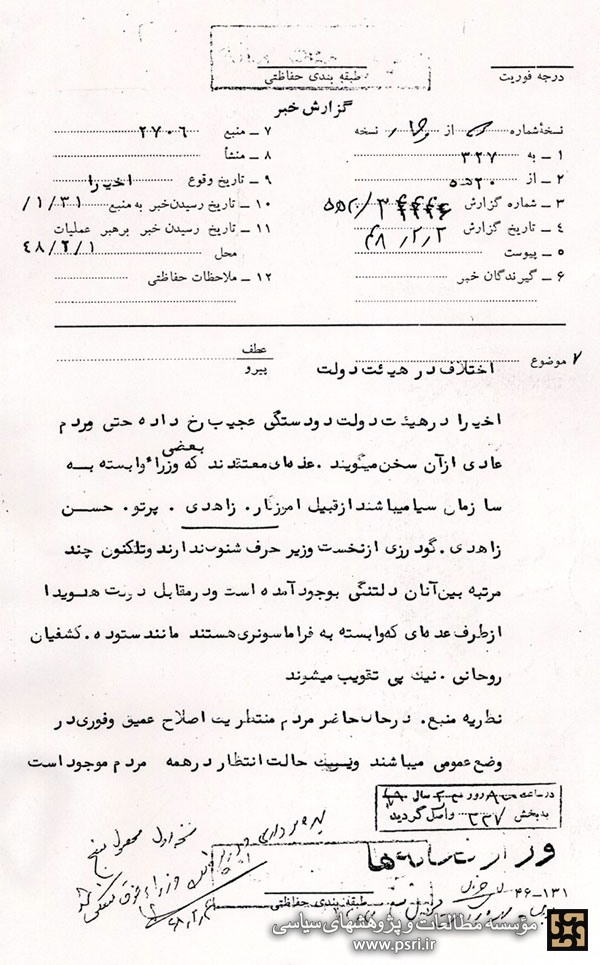 درجه فوریت
طبقه بندی حفاظتی
گزارش خبر
نسخهٔ شماره از نسخه
۱ ــ به ۳۲۷
۲ ــ از ۲۰ ه‍ ۵
۳ ــ شماره گزارش
۴ ــ تاریخ گزارش ۴۸/۲/۲
۵ ــ پیوست
۶ ــ گیرندگان خبر
۷ ــ منبع ۲۷۰۶
۸ ــ منشأ
۹ ــ تاریخ وقوع اخیرا
۱۰ ــ تاریخ رسیدن خبر به منبع ۱/۳۱/
۱۱ ــ تاریخ رسیدن خبر برهبر عملیات
محل ۴۸/۲/۱
۱۲ ــ ملاحظات حفاظتی
موضوع اختلاف در هیئت دولت
عطف
پیرو
اخیرا در هیئت دولت دودستگی عجیب رخ داده حتی مردم
عادی از آن سخن میگویند . عده‌ای معتقدند که بعضی وزراء وابسته به
سازمان سیا میباشند از قبیل آموزگار . زاهدی . پرتو . حسن
زاهدی . گودرزی از نخست وزیر حرف شنوی ندارند و تاکنون چند
مرتبه بین آنان دلتنگی بوجود آمده است و در مقابل دولت هویدا
از طرف عده‌ای که وابسته به فراماسونری هستند مانند ستوده . کشفیان
روحانی . نیک پی تقویت میشوند
نظریه منبع . در حال حاضر مردم منتظر یک اصلاح عمیق و فوری در
وضع عمومی میباشند و یک حالت انتظار در همه مردم موجود است
در ساعت روز سال
به بخش ۳۳۷ واصل گردید
نسخه اول
۴۶-۱۳۱
طبقه بندی حفاظتی
موسسه مطالعات و پژوهشهای سیاسی
www.psri.ir